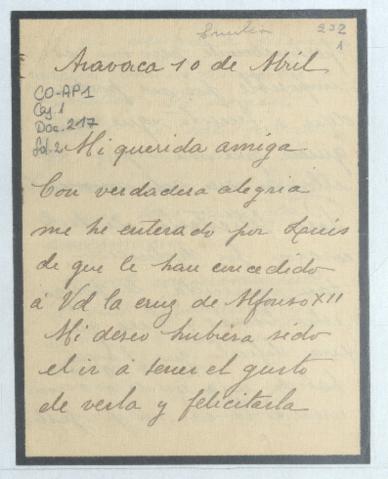 232
1
Aravaca 10 de Abril
CO-AP1
Caj. 1
Doc. 217
Fol. 2
Mi querida amiga
Con verdadera alegria
me he enterado por Louis
de que le han concedido
á Vd la cruz de Alfonso XII
Mi deseo hubiera sido
el ir á tener el gusto
de verla y felicitarla